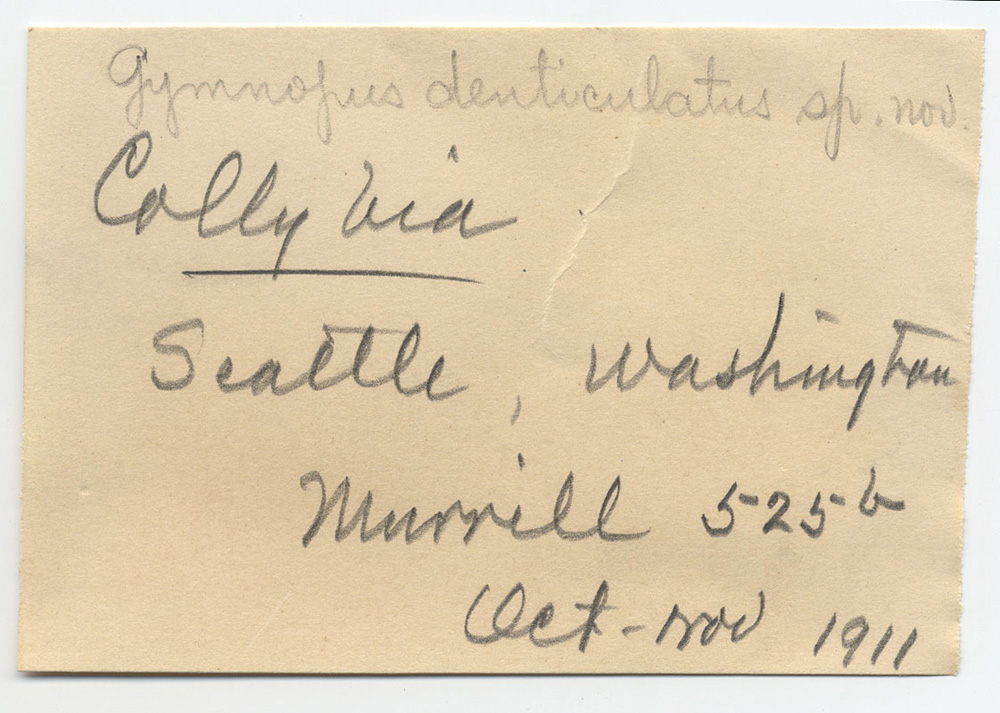 Gymnopus denticulatus sp. nov.
Collybia
Seattle, Washington
Murrill 525b
Oct - Nov 1911